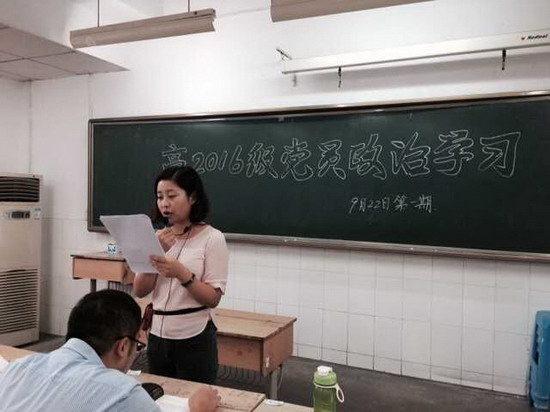 高2016级党员政治学习
9月22日第一期